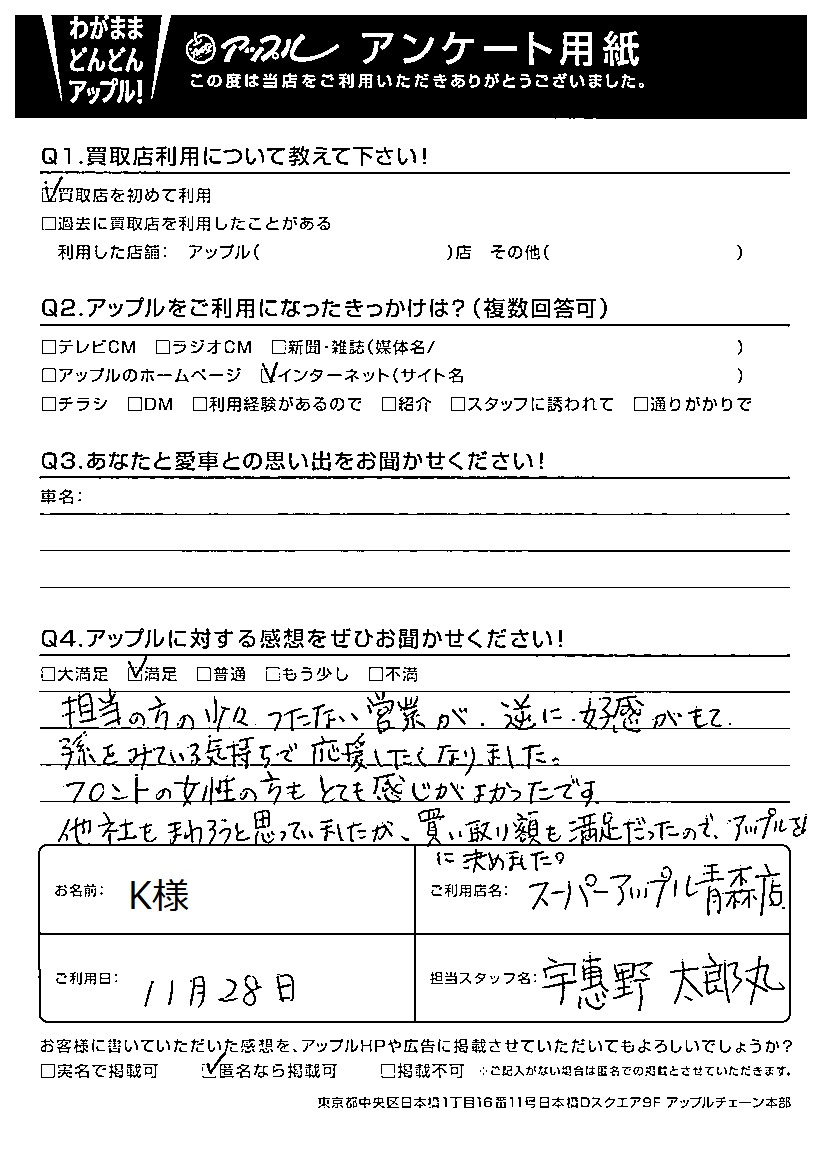 わがまま
どんどん
アップル!
アップル アンケート用紙
この度は当店をご利用いただきありがとうございました。
Q1.買取店利用について教えて下さい!
☑買取店を初めて利用
□過去に買取店を利用したことがある
利用した店舗: アップル( )店 その他( )
Q2.アップルをご利用になったきっかけは?(複数回答可)
□テレビCM □ラジオCM □新聞・雑誌(媒体名/ )
□アップルのホームページ ☑インターネット(サイト名 )
□チラシ □DM □利用経験があるので □紹介 □スタッフに誘われて □通りがかりで
Q3.あなたと愛車との思い出をお聞かせください!
車名:
Q4.アップルに対する感想をぜひお聞かせください!
□大満足 ☑満足 □普通 □もう少し □不満
担当の方の少々つたない営業が、逆に好感がもて
孫をみている気持ちで応援したくなりました。
フロントの女性の方もとても感じがよかったです。
他社もまわろうと思っていましたが、買い取り額も満足だったので、アップルさん
に決めました。
お名前: K様
ご利用店名: スーパーアップル青森店
ご利用日: 11月28日
担当スタッフ名: 宇恵野 太郎丸
お客様に書いていただいた感想を、アップルHPや広告に掲載させていただいてもよろしいでしょうか?
□実名で掲載可 ☑匿名なら掲載可 □掲載不可 ※ご記入がない場合は匿名での掲載とさせていただきます。
東京都中央区日本橋1丁目16番11号日本橋Dスクエア9F アップルチェーン本部